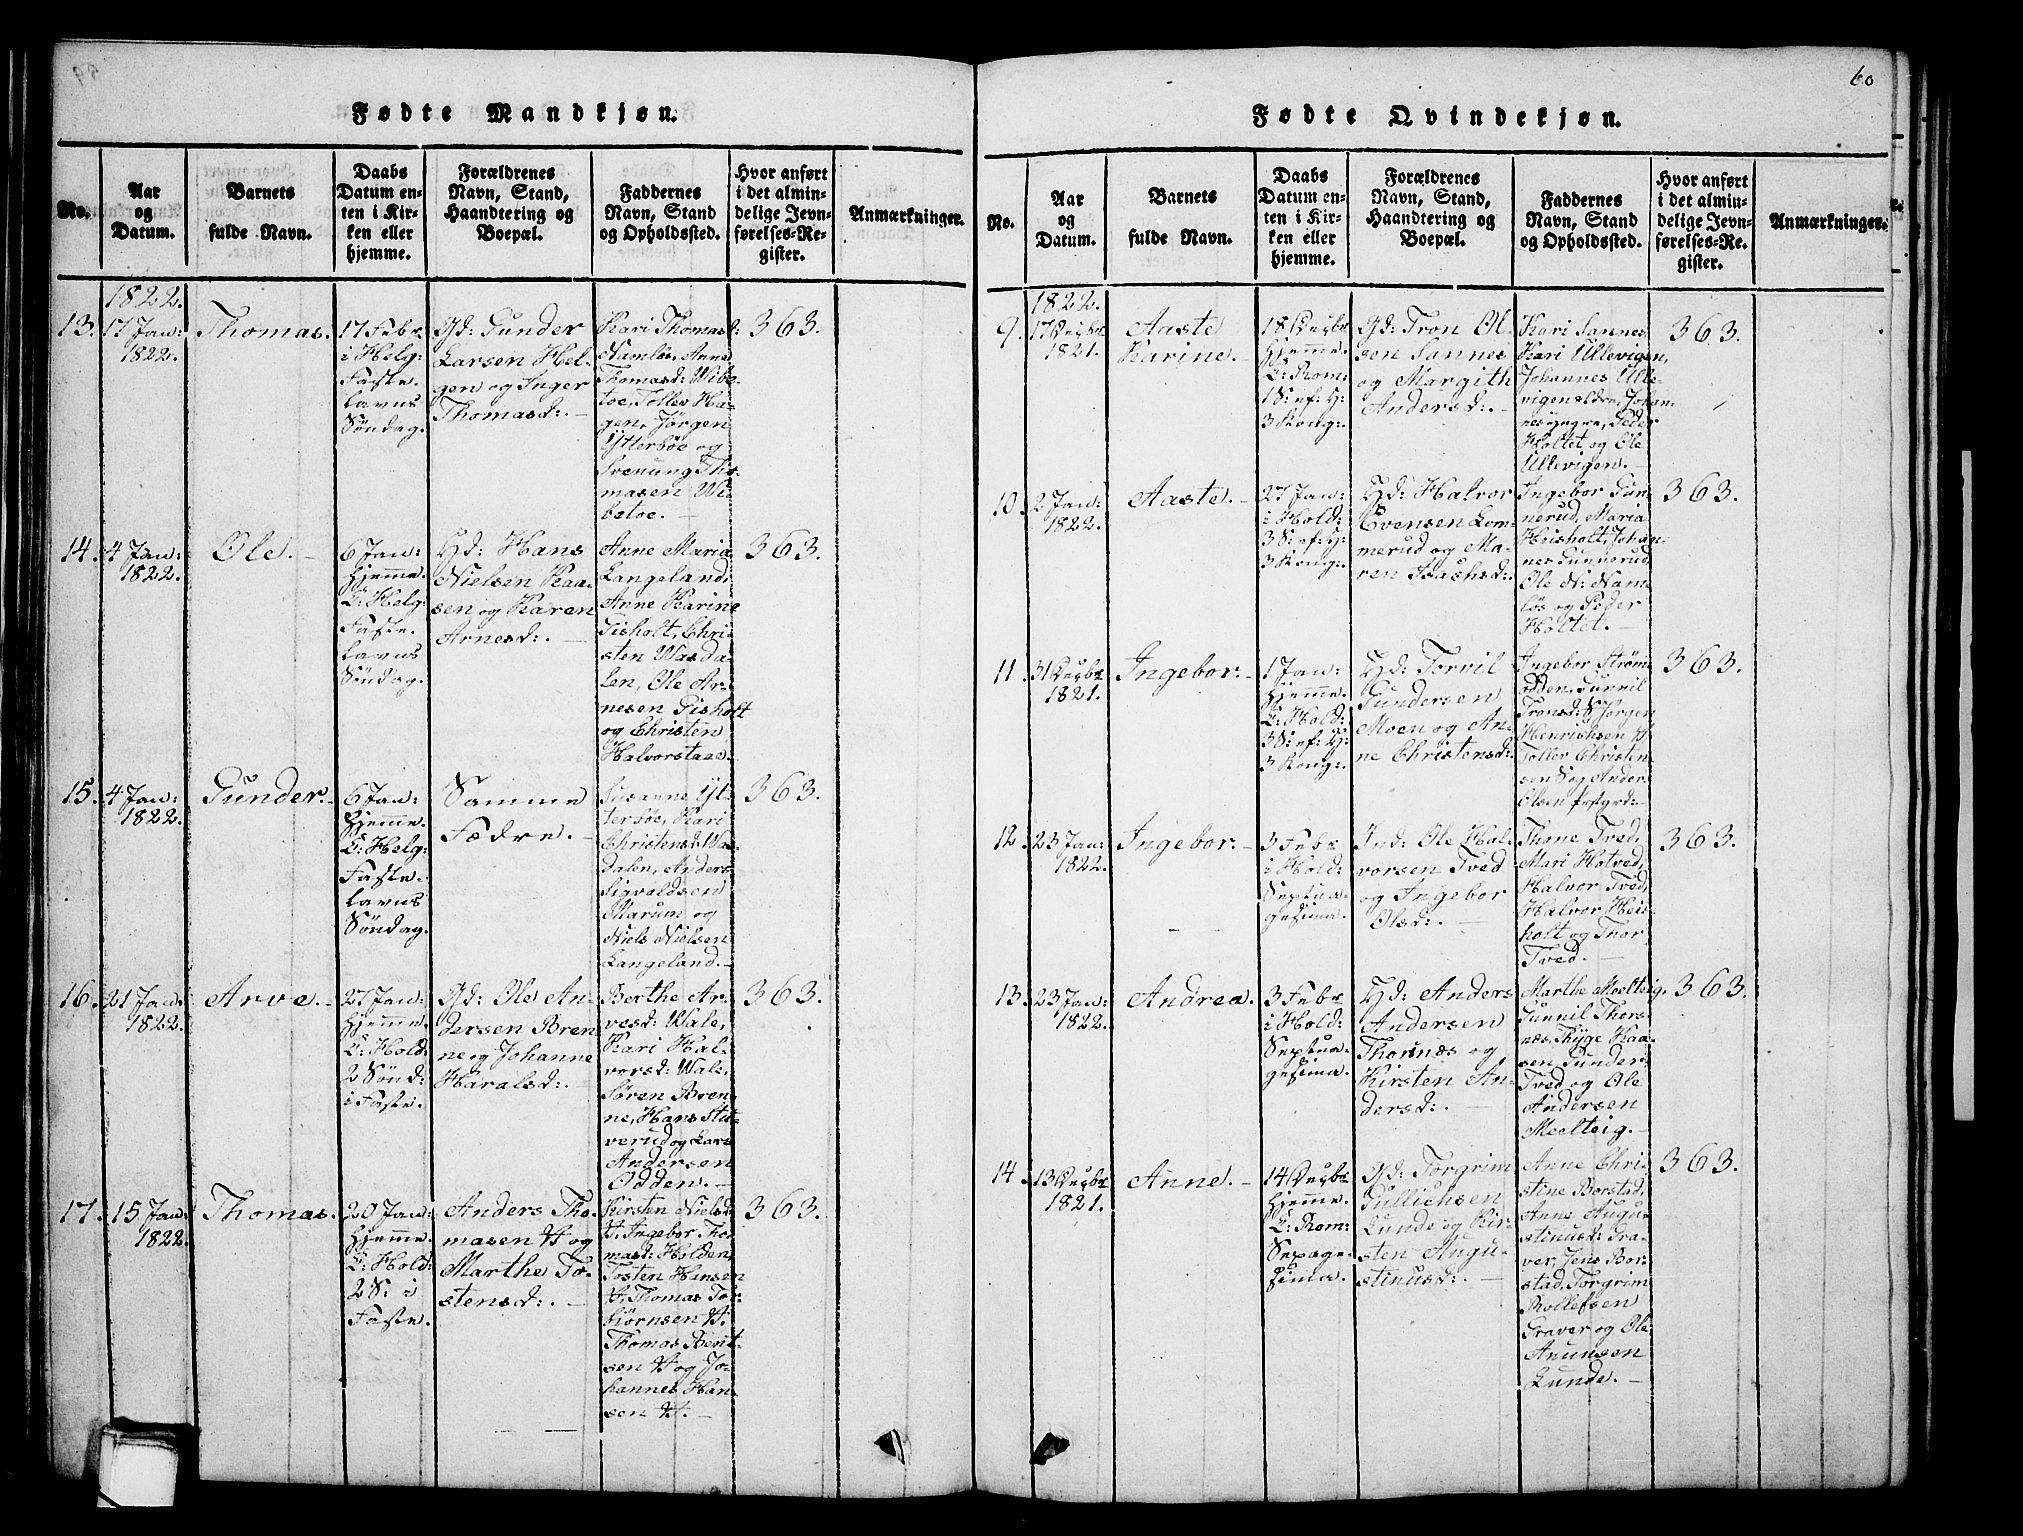 60
Fødte Mandkjøn.
No.
Aar
og
Datum.
Barnets
fulde Navn.
Daabs
Datum en-
ten i Kir-
ken eller
hjemme.
Forældrenes
Navn, Stand,
Haandtering og
Boepæl.
Faddernes
Navn, Stand
og Opholdssted.
Hvor anført
i det almin-
delige Jevn-
førelses-Re-
gister.
Anmærkninger.
1822.
13.
17 Jan:
1822.
Thomas.
17 Febr
i Helg:
Faste-
lavns
Søndag.
Gd: Gunder
Larsen Hel-
gen og Inger
Thomasd:.
Kari Thomasd:
Namløs, Anne
Thomasd: Wibe-
toe, Tollev Ha-
gen, Jörgen
Ytterböe og
Svenung Tho-
masen Wi-
betoe.
363.
14.
4 Jan:
1822.
Ole.
6 Jan:
hjemme.
C: Helg:
Faste-
lavns
Søndag.
Hd: Hans
Nielsen Kaa-
sen og Karen
Arnesd:.
Anne Maria
Langeland,
Anne Karine
Gisholt, Chri-
sten Wasda-
len, Ole Ar-
nesen Gisholt
og Christen
Halvorstaae.
363.
15.
4 Jan:
1822.
Gunder.
6 Jan:
hjemme.
C: Helg:
Faste-
lavns
Søndag.
Samme
Fædre.
Susanne Yt-
terböe, Kari
Christensd: Was-
dalen, Anders
Sigvaldsen
Marum og
Niels Nielsen
Langeland.
363.
16.
21 Jan:
1822.
Arve.
27 Jan:
hjemme.
C: Hold:
2 Sönd:
i Faste.
Gd: Ole An-
dersen Bren-
ne og Johanne
Haralsd:.
Berthe Ar-
vesd: Wale,
Kari Hal-
vorsd: Wale,
Sören Bren-
ne, Hans Stu-
verud og Lars
Andersen
Odden.
363.
17.
15 Jan:
1822.
Thomas.
20 Jan:
hjemme.
C: Hold:
2 S: i
Faste.
Anders Tho-
masen H og
Marthe To-
stensd:.
Kirsten Nielsd:
H, Ingebor Tho-
masd: Holden,
Tosten Hansen
H, Thomas Tor-
biörnsen H.
Thomas Bent-
sen H og Jo-
hannes Han-
sen H.
363.
Fødte Qvindekjøn.
No.
Aar
og
Datum.
Barnets
fulde Navn.
Daabs
Datum en-
ten i Kir-
ken eller
hjemme.
Forældrenes
Navn, Stand,
Haandtering og
Boepæl.
Faddernes
Navn, Stand
og Opholdssted.
Hvor anført
i det almin-
delige Jevn-
førelses-Re-
gister.
Anmærkninger.
1822.
9.
17 Decbr
1821.
Aaste
Karine.
18 Decbr
hjemme.
C: Rom:
1 S: ef: H:
3 Kong:.
Gd: Tron Ol-
sen Sannes
og Margith
Andersd:.
Kari Sannes
Kari Ullevigen,
Johannes Ulle-
vigen ældre, Johan-
nes yngre, Peder
Holtet og Ole
Ullevigen.
363.
10.
2 Jan:
1822.
Aaste.
27 Jan:
i Hold:
3 S: ef: H:
3 Kong:.
Hd: Halvor
Evensen Lom-
merud og Ma-
ren Isachsd:.
Ingebor Gun-
nerud, Maria
Heisholt, Johan-
nes Gunnerud,
Ole N: Nam-
løs og Peder
Holtet.
363.
11.
31 Decbr
1821.
Ingebor.
1 Jan:
hjemme.
C: Hold:
3 S: ef: H:
3 Kong:.
Hd: Torvil
Gundersen
Moen og An-
ne Christensd:.
Ingebor Ström-
odden, Gunnil
Tronsd: S, Jörgen
Henrichsen H
Toller Christen-
sen S og Anders
Olsen
363.
12.
23 Jan:
1822.
Ingebor.
3 Febr
i Hold:
Septua-
gesima.
Ind: Ole Hal-
vorsen Tved
og Ingebor
Olsd:.
Thone Tved,
Mari Hotved,
Halvor Tved,
Halvor Heis-
holt og Thor
Tved.
363.
13.
23 Jan:
1822.
Andrea.
3 Febr
i Hold:
Septua-
gesima.
Hd: Anders
Andersen
Thorsnæs og
Kirsten An-
dersd:.
Marthe Meelteig,
Gunnil Thors-
næs, Thyge Kaa-
sen, Gunder
Tved og Ole
Andersen
Meelteig.
363.
14.
13 Decbr
1821.
Anne.
14 Decbr
hjemme.
C: Rom:
Sexage-
sima.
Gd: Torgrim
Gullichsen
Lunde og Kir-
sten Augu-
stinusd:.
Anne Chri-
stine Borstad,
Anne Augu-
stinusd: Gra-
ver, Jens Bor-
stad, Torgrim
Rollefsen
Graver og Ole
Anunsen
Lunde.
363.